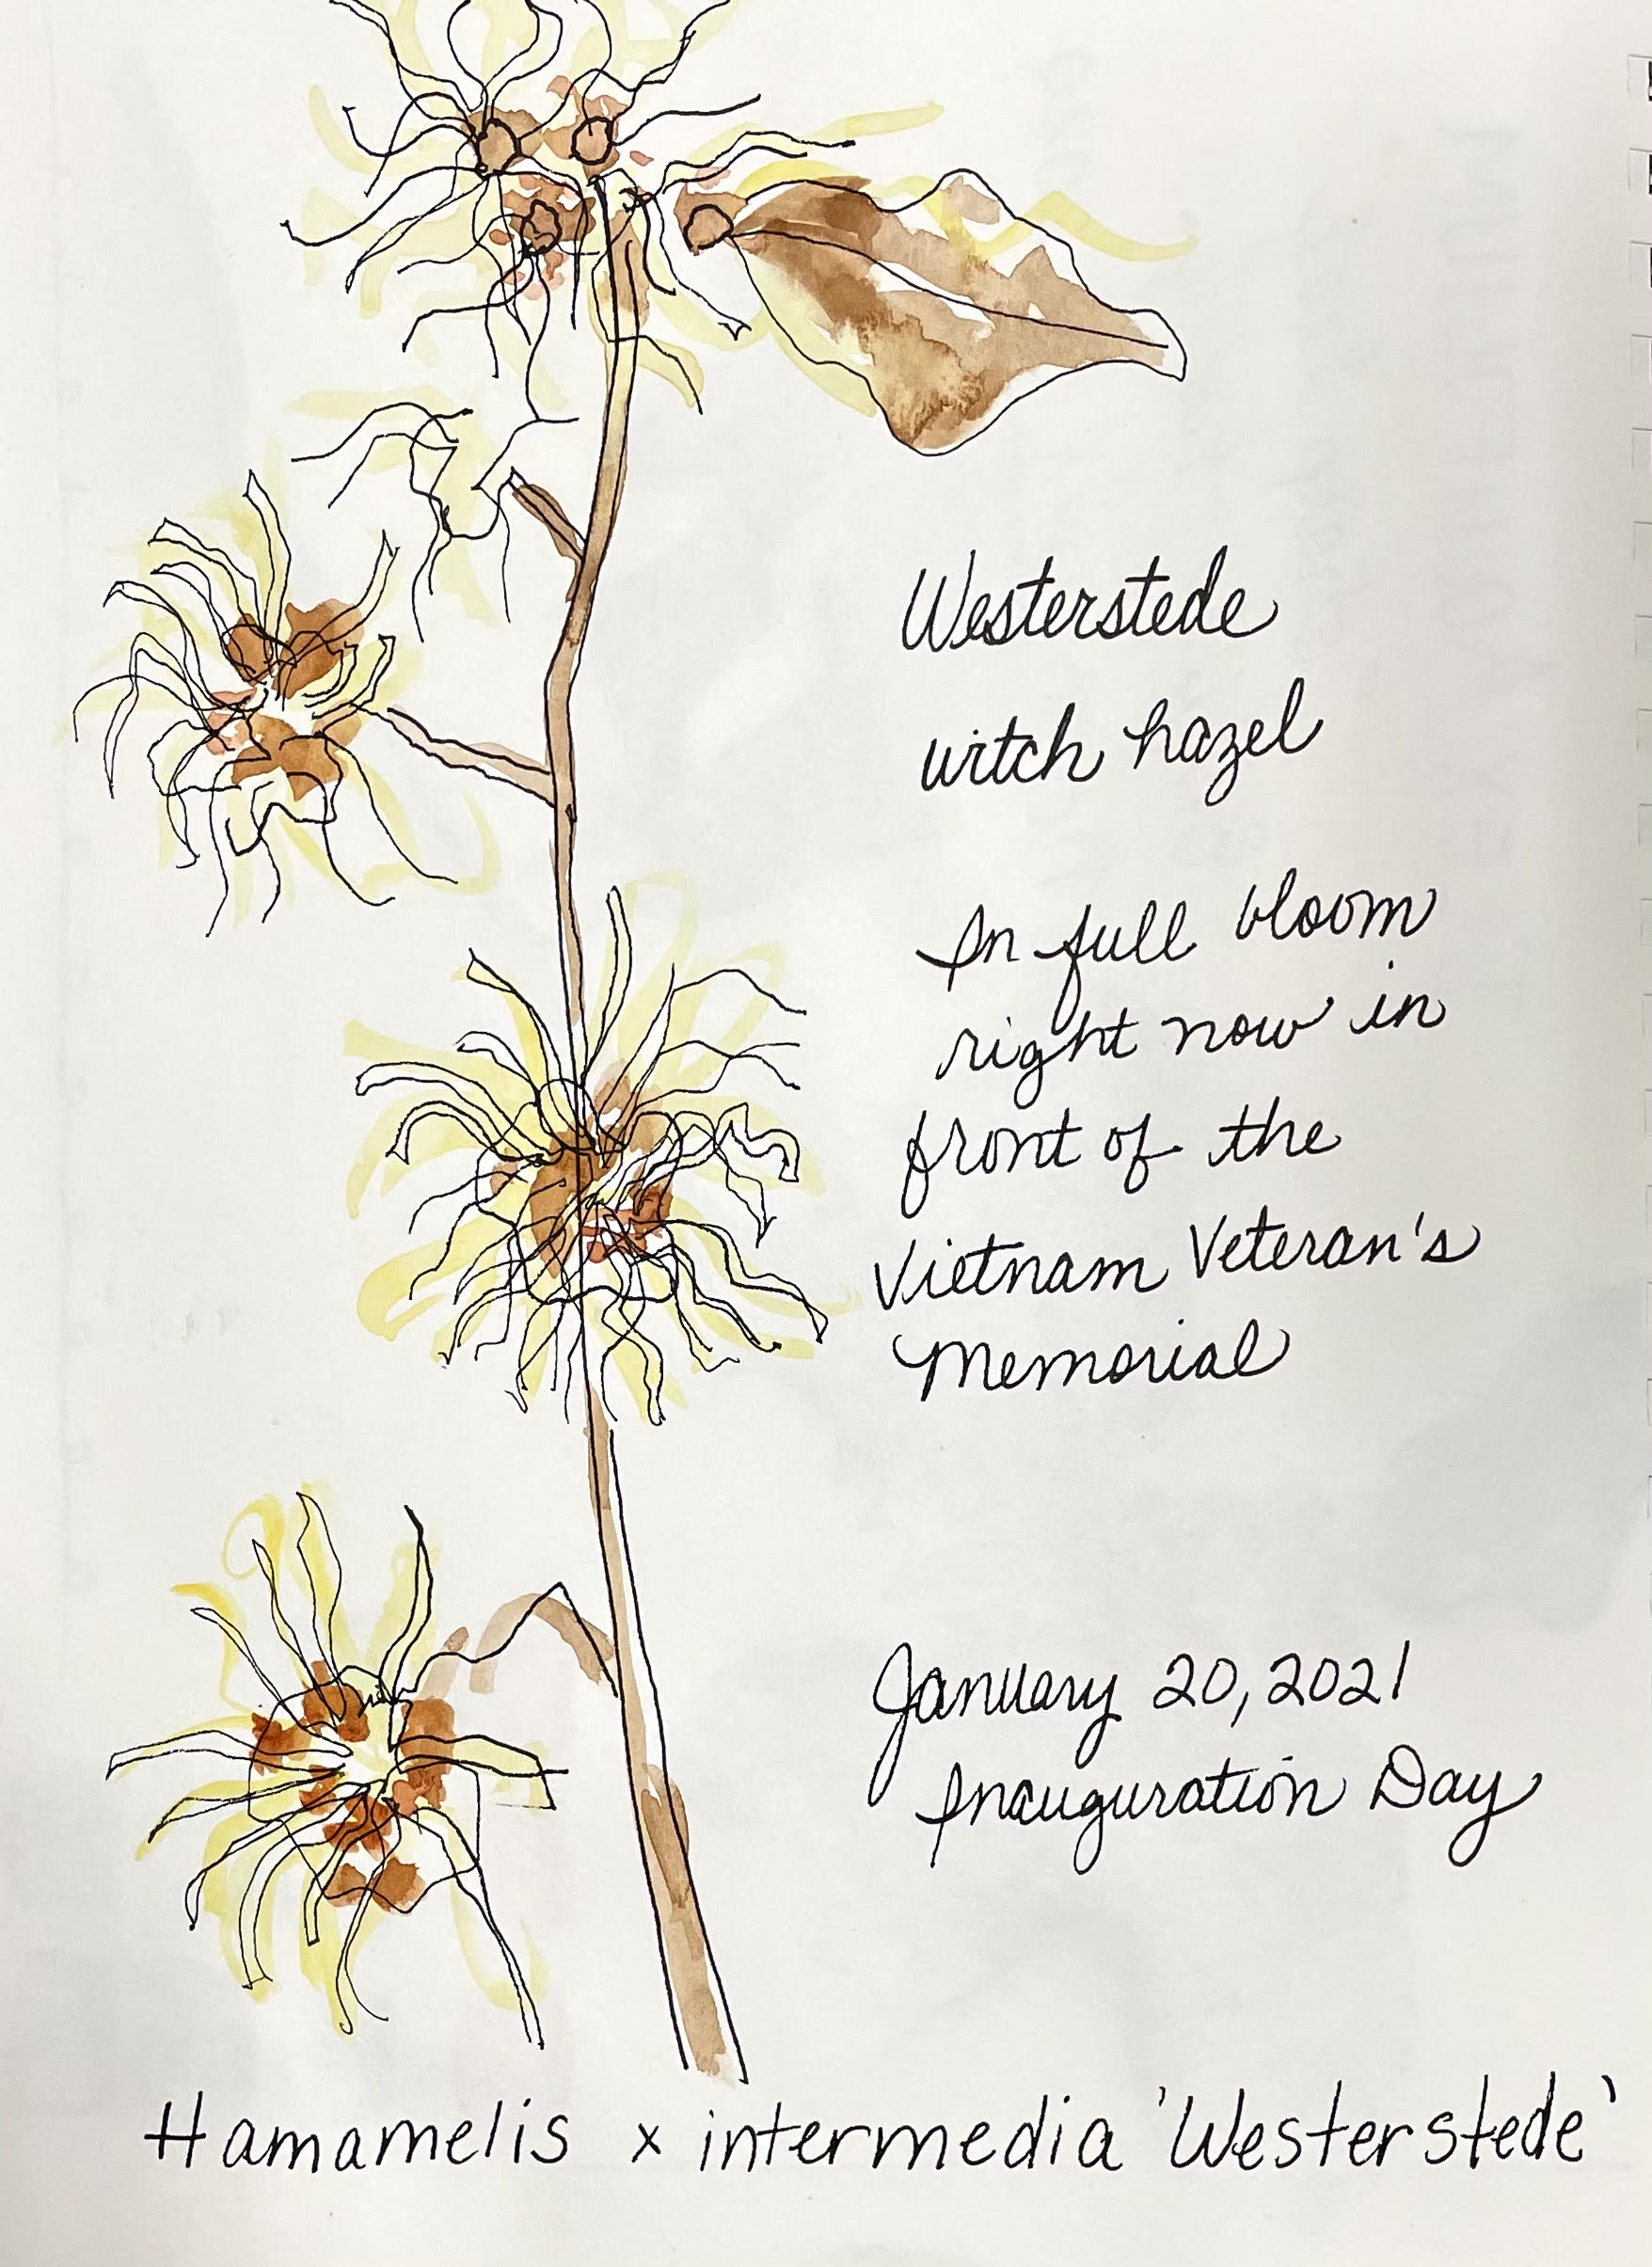 Westerstede
witch hazel
In full bloom
right now in
front of the
Vietnam Veteran's
Memorial
January 20, 2021
Inauguration Day
Hamamelis x intermedia 'Westerstede'